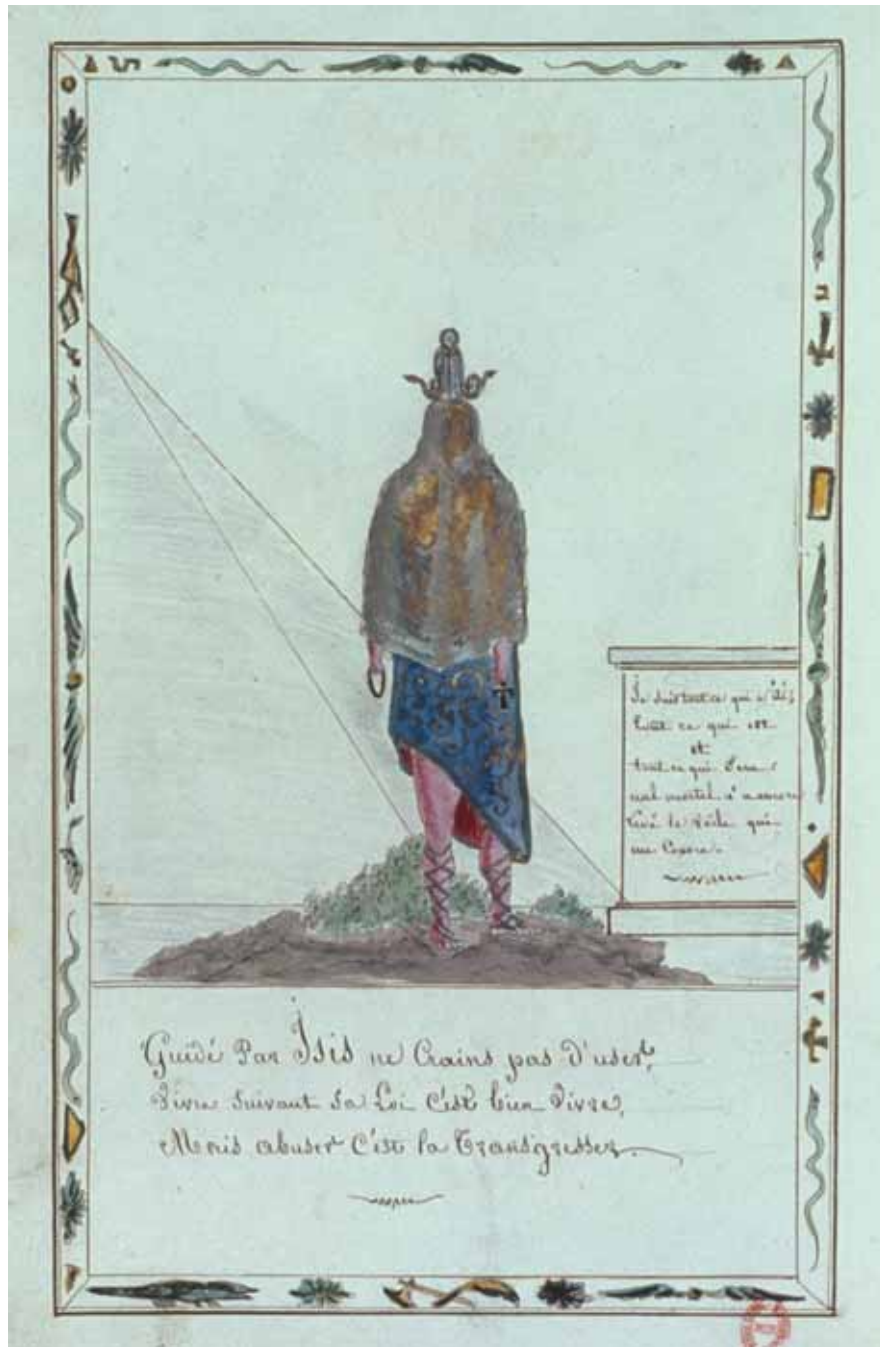 Je suis tout ce qui a été,
tout ce qui est
et
tout ce qui Sera
nul mortel n'a encore
levé le voile qui
me Couvre.
Guidé Par Isis ne Crains pas d'user,
Vivre Suivant Sa Loi C'est bien Vivre,
Mais abuser C'est la Transgresser.